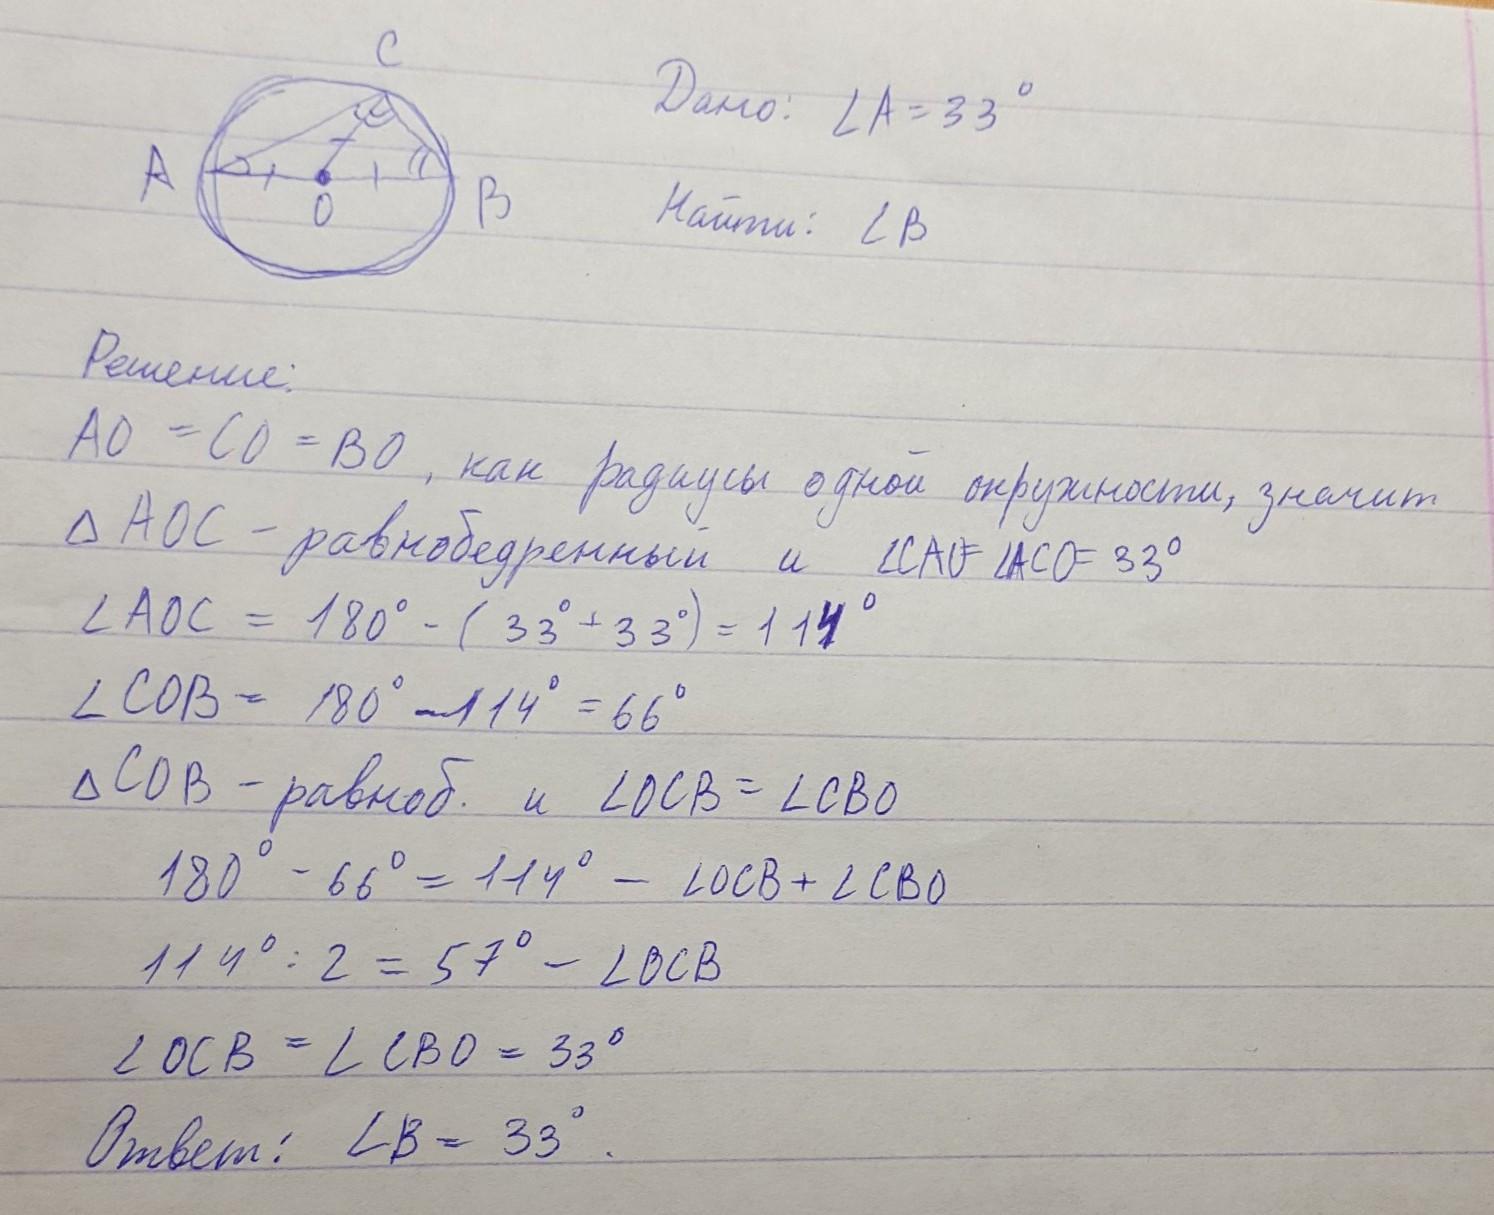 C
Дано: ∠A = 33°
A
O
B
Найти: ∠B
Решение:
AO = CO = BO, как радиусы одной окружности, значит
△AOC - равнобедренный и ∠CAO = ∠ACO = 33°
∠AOC = 180° - (33° + 33°) = 114°
∠COB = 180° - 114° = 66°
△COB - равноб. и ∠OCB = ∠CBO
180° - 66° = 114° - ∠OCB + ∠CBO
114° : 2 = 57° - ∠OCB
∠OCB = ∠CBO = 33°
Ответ: ∠B = 33°.